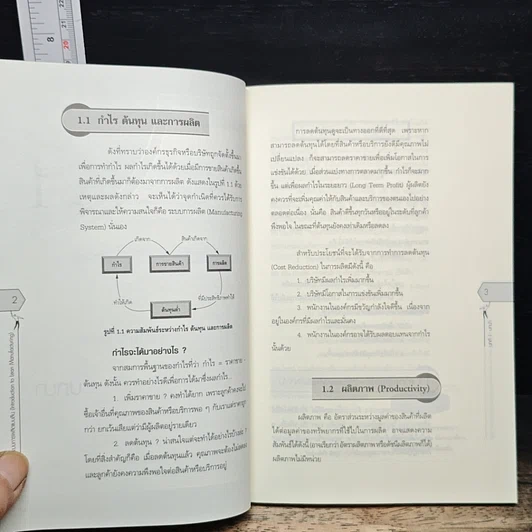 1.1 กำไร ต้นทุน และการผลิต
ดังที่ทราบว่าองค์กรธุรกิจหรือบริษัทถูกจัดตั้งขึ้นมา
เพื่อการทำกำไร ผลกำไรเกิดขึ้นได้ด้วยเมื่อมีการขายสินค้าเกิดขึ้น
สินค้าที่เกิดขึ้นมาก็ต้องมาจากการผลิต ดังแสดงในรูปที่ 1.1 ด้วย
เหตุและผลดังกล่าว จะเห็นได้ว่าจุดกำเนิดที่ควรได้รับการ
พิจารณาและให้ความสนใจก็คือ ระบบการผลิต (Manufacturing
System) นั่นเอง
เกิดจาก สินค้าเกิดจาก
กำไร การขายสินค้า การผลิต
ทำให้เกิด ที่มีประสิทธิภาพทำให้
ต้นทุนต่ำ
รูปที่ 1.1 ความสัมพันธ์ระหว่างกำไร ต้นทุน และการผลิต
กำไรจะได้มาอย่างไร ?
จากสมการพื้นฐานของกำไรที่ว่า กำไร = ราคาขาย -
ต้นทุน ดังนั้น ควรทำอย่างไรดีเพื่อการได้มาซึ่งผลกำไร...
1. เพิ่มราคาขาย ? คงทำได้ยาก เพราะลูกค้าคงจะไป
ซื้อเจ้าอื่นที่คุณภาพของสินค้าหรือบริการพอ ๆ กับเราแต่ราคาถูก
กว่า ยกเว้นเสียแต่ว่ามีผู้ผลิตอยู่รายเดียว
2. ลดต้นทุน ? น่าสนใจแต่จะทำได้อย่างไรบ้างล่ะ ?
โดยที่สิ่งสำคัญก็คือ เมื่อลดต้นทุนแล้ว คุณภาพจะต้องไม่ลดลง
และลูกค้ายังคงความพึงพอใจต่อสินค้าหรือบริการอยู่
2
(Introduction to Lean Manufacturing)
การลดต้นทุนดูจะเป็นทางออกที่ดีที่สุด เพราะหาก
สามารถลดต้นทุนได้โดยที่สินค้าหรือบริการยังดีมีคุณภาพไม่
เปลี่ยนแปลง ก็จะสามารถลดราคาขายเพื่อเพิ่มโอกาสในการ
แข่งขันได้ด้วย เมื่อส่วนแบ่งทางการตลาดมากขึ้น กำไรก็จะมาก
ขึ้น แต่เพื่อผลกำไรในระยะยาว (Long Term Profit) ผู้ผลิตยัง
คงควรที่จะเพิ่มเติมคุณค่าให้กับสินค้าและบริการของตนเองไปอย่าง
ตลอดต่อเนื่อง นั่นคือ สินค้าดีขึ้นทุกวันหรืออยู่ในระดับที่ลูกค้า
พึงพอใจ ในขณะที่ต้นทุนยังคงเท่าเดิมหรือลดลง
สำหรับประโยชน์ที่จะได้รับจากการทำการลดต้นทุน
(Cost Reduction) ในการผลิตมีดังนี้ คือ
1. บริษัทมีผลกำไรเพิ่มมากขึ้น
2. บริษัทมีโอกาสในการแข่งขันเพิ่มมากขึ้น
3. พนักงานในองค์กรมีขวัญกำลังใจดีขึ้น เนื่องจาก
อยู่ในองค์กรที่มีผลกำไรและมั่นคง
4. พนักงานในองค์กรอาจได้รับผลตอบแทนจากกำไร
นั้นด้วย
1.2 ผลิตภาพ (Productivity)
ผลิตภาพ คือ อัตราส่วนระหว่างมูลค่าของสินค้าที่ผลิต
ได้ต่อมูลค่าของทรัพยากรที่ใช้ไปในการผลิต อาจแสดงความ
สัมพันธ์ได้ดังนี้ (อาจเรียกว่า อัตราผลิตภาพ หรือดัชนีผลิตภาพก็ได้)
ผลิตภาพไม่มีหน่วย
3
8
20